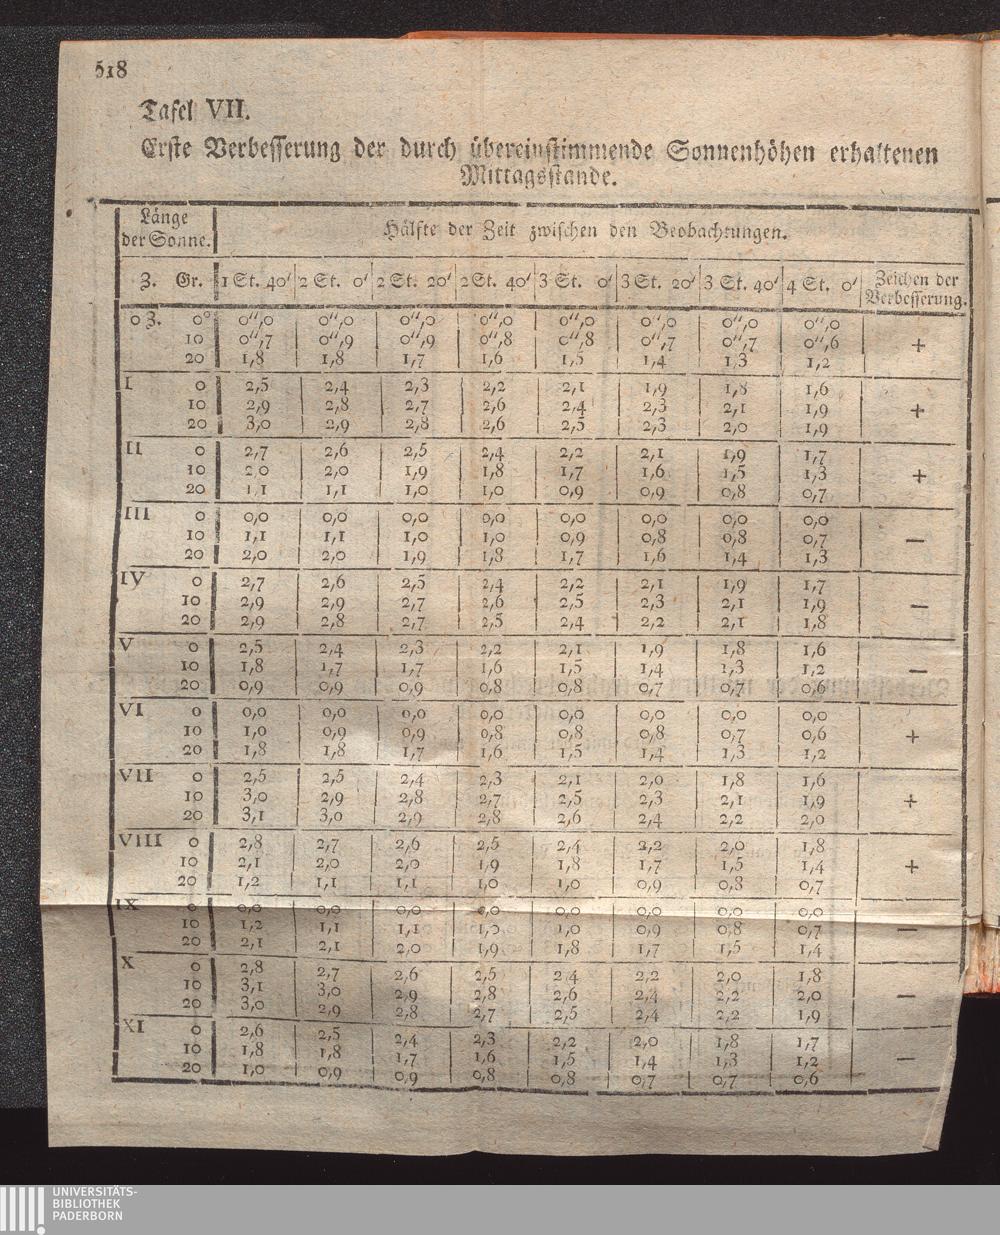 518
Tafel VII.
Erste Verbesserung der durch übereinstimmende Sonnenhöhen erhaltenen
Mittagsstande.
Länge
der Sonne.
Hälfte der Zeit zwischen den Beobachtungen.
Z. Gr. 1 St. 40' 2 St. 0' 2 St. 20' 2 St. 40' 3 St. 0' 3 St. 20' 3 St. 40' 4 St. 0' Zeichen der Verbesserung.
0 Z. 0° 0'',0 0'',0 0'',0 0'',0 0'',0 0'',0 0'',0 0'',0
10 0'',7 0'',9 0'',9 0'',8 0'',8 0'',7 0'',7 0'',6 +
20 1,8 1,8 1,7 1,6 1,5 1,4 1,3 1,2
I 0 2,5 2,4 2,3 2,2 2,1 1,9 1,8 1,6
10 2,9 2,8 2,7 2,6 2,4 2,3 2,1 1,9 +
20 3,0 2,9 2,8 2,6 2,5 2,3 2,0 1,9
II 0 2,7 2,6 2,5 2,4 2,2 2,1 1,9 1,7
10 2,0 2,0 1,9 1,8 1,7 1,6 1,5 1,3 +
20 1,1 1,1 1,0 1,0 0,9 0,9 0,8 0,7
III 0 0,0 0,0 0,0 0,0 0,0 0,0 0,0 0,0
10 1,1 1,1 1,0 1,0 0,9 0,8 0,8 0,7 —
20 2,0 2,0 1,9 1,8 1,7 1,6 1,4 1,3
IV 0 2,7 2,6 2,5 2,4 2,2 2,1 1,9 1,7
10 2,9 2,9 2,7 2,6 2,5 2,3 2,1 1,9 —
20 2,9 2,8 2,7 2,5 2,4 2,2 2,1 1,8
V 0 2,5 2,4 2,3 2,2 2,1 1,9 1,8 1,6
10 1,8 1,7 1,7 1,6 1,5 1,4 1,3 1,2 —
20 0,9 0,9 0,9 0,8 0,8 0,7 0,7 0,6
VI 0 0,0 0,0 0,0 0,0 0,0 0,0 0,0 0,0
10 1,0 0,9 0,9 0,8 0,8 0,8 0,7 0,6 +
20 1,8 1,8 1,7 1,6 1,5 1,4 1,3 1,2
VII 0 2,5 2,5 2,4 2,3 2,1 2,0 1,8 1,6
10 3,0 2,9 2,8 2,7 2,5 2,3 2,1 1,9 +
20 3,1 3,0 2,9 2,8 2,6 2,4 2,2 2,0
VIII 0 2,8 2,7 2,6 2,5 2,4 2,2 2,0 1,8
10 2,1 2,0 2,0 1,9 1,8 1,7 1,5 1,4 +
20 1,2 1,1 1,1 1,0 1,0 0,9 0,8 0,7
IX 0 0,0 0,0 0,0 0,0 0,0 0,0 0,0 0,0
10 1,2 1,1 1,1 1,0 1,0 0,9 0,8 0,7 —
20 2,1 2,1 2,0 1,9 1,8 1,7 1,5 1,4
X 0 2,8 2,7 2,6 2,5 2,4 2,2 2,0 1,8
10 3,1 3,0 2,9 2,8 2,6 2,4 2,2 2,0 —
20 3,0 2,9 2,8 2,7 2,5 2,4 2,2 1,9
XI 0 2,6 2,5 2,4 2,3 2,2 2,0 1,8 1,7
10 1,8 1,8 1,7 1,6 1,5 1,4 1,3 1,2 —
20 1,0 0,9 0,9 0,8 0,8 0,7 0,7 0,6
UNIVERSITÄTS-
BIBLIOTHEK
PADERBORN